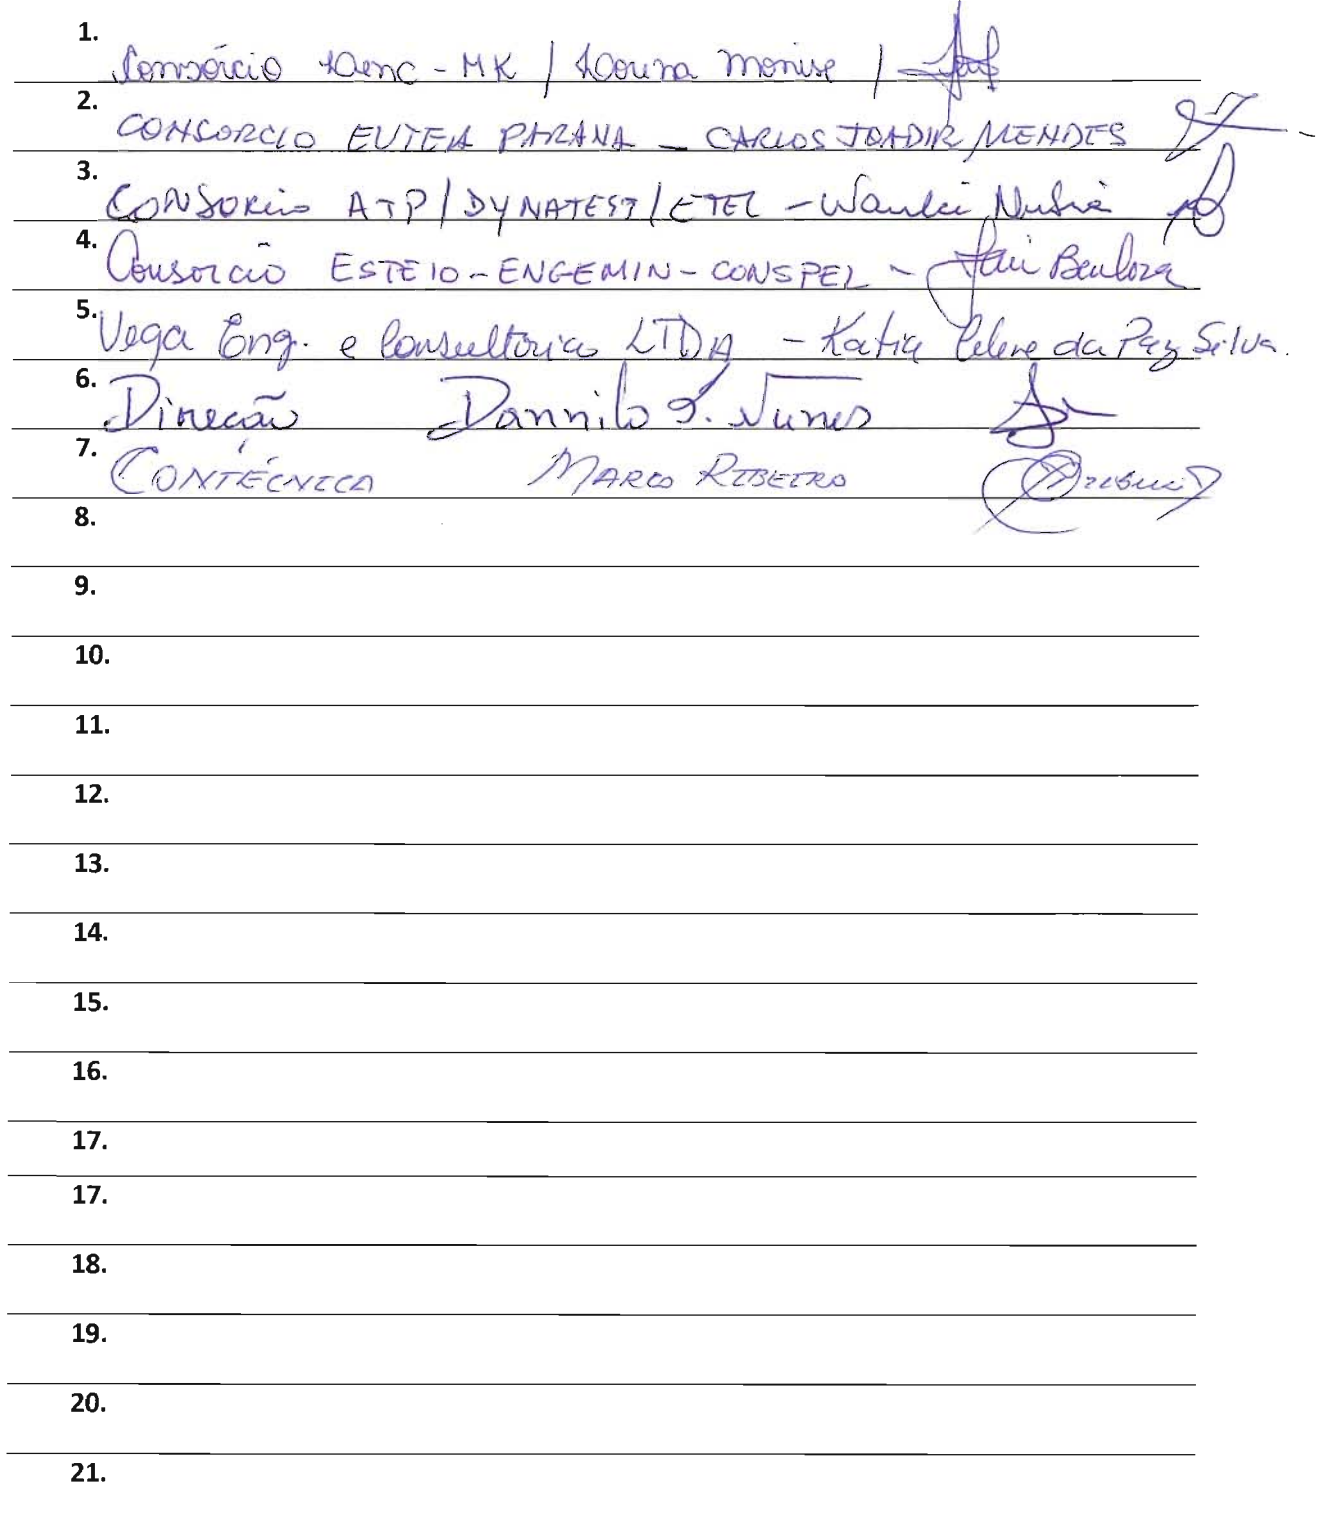 1. Consórcio - MK /
2. CONSORCIO PARANA - CARLOS JOADIR MENDES
3. CONSORCIO ATP/DYNATEST/ETEL -
4. Consorcio ESTEIO-ENGEMIN-CONSPEL -
5. Vega Eng. e Consultoria LTDA - Katia Celene da Paz Silva.
6. Direção Dannilo S. Nunes
7. CONTÉCNICA MARCO RIBEIRO
8.
9.
10.
11.
12.
13.
14.
15.
16.
17.
17.
18.
19.
20.
21.